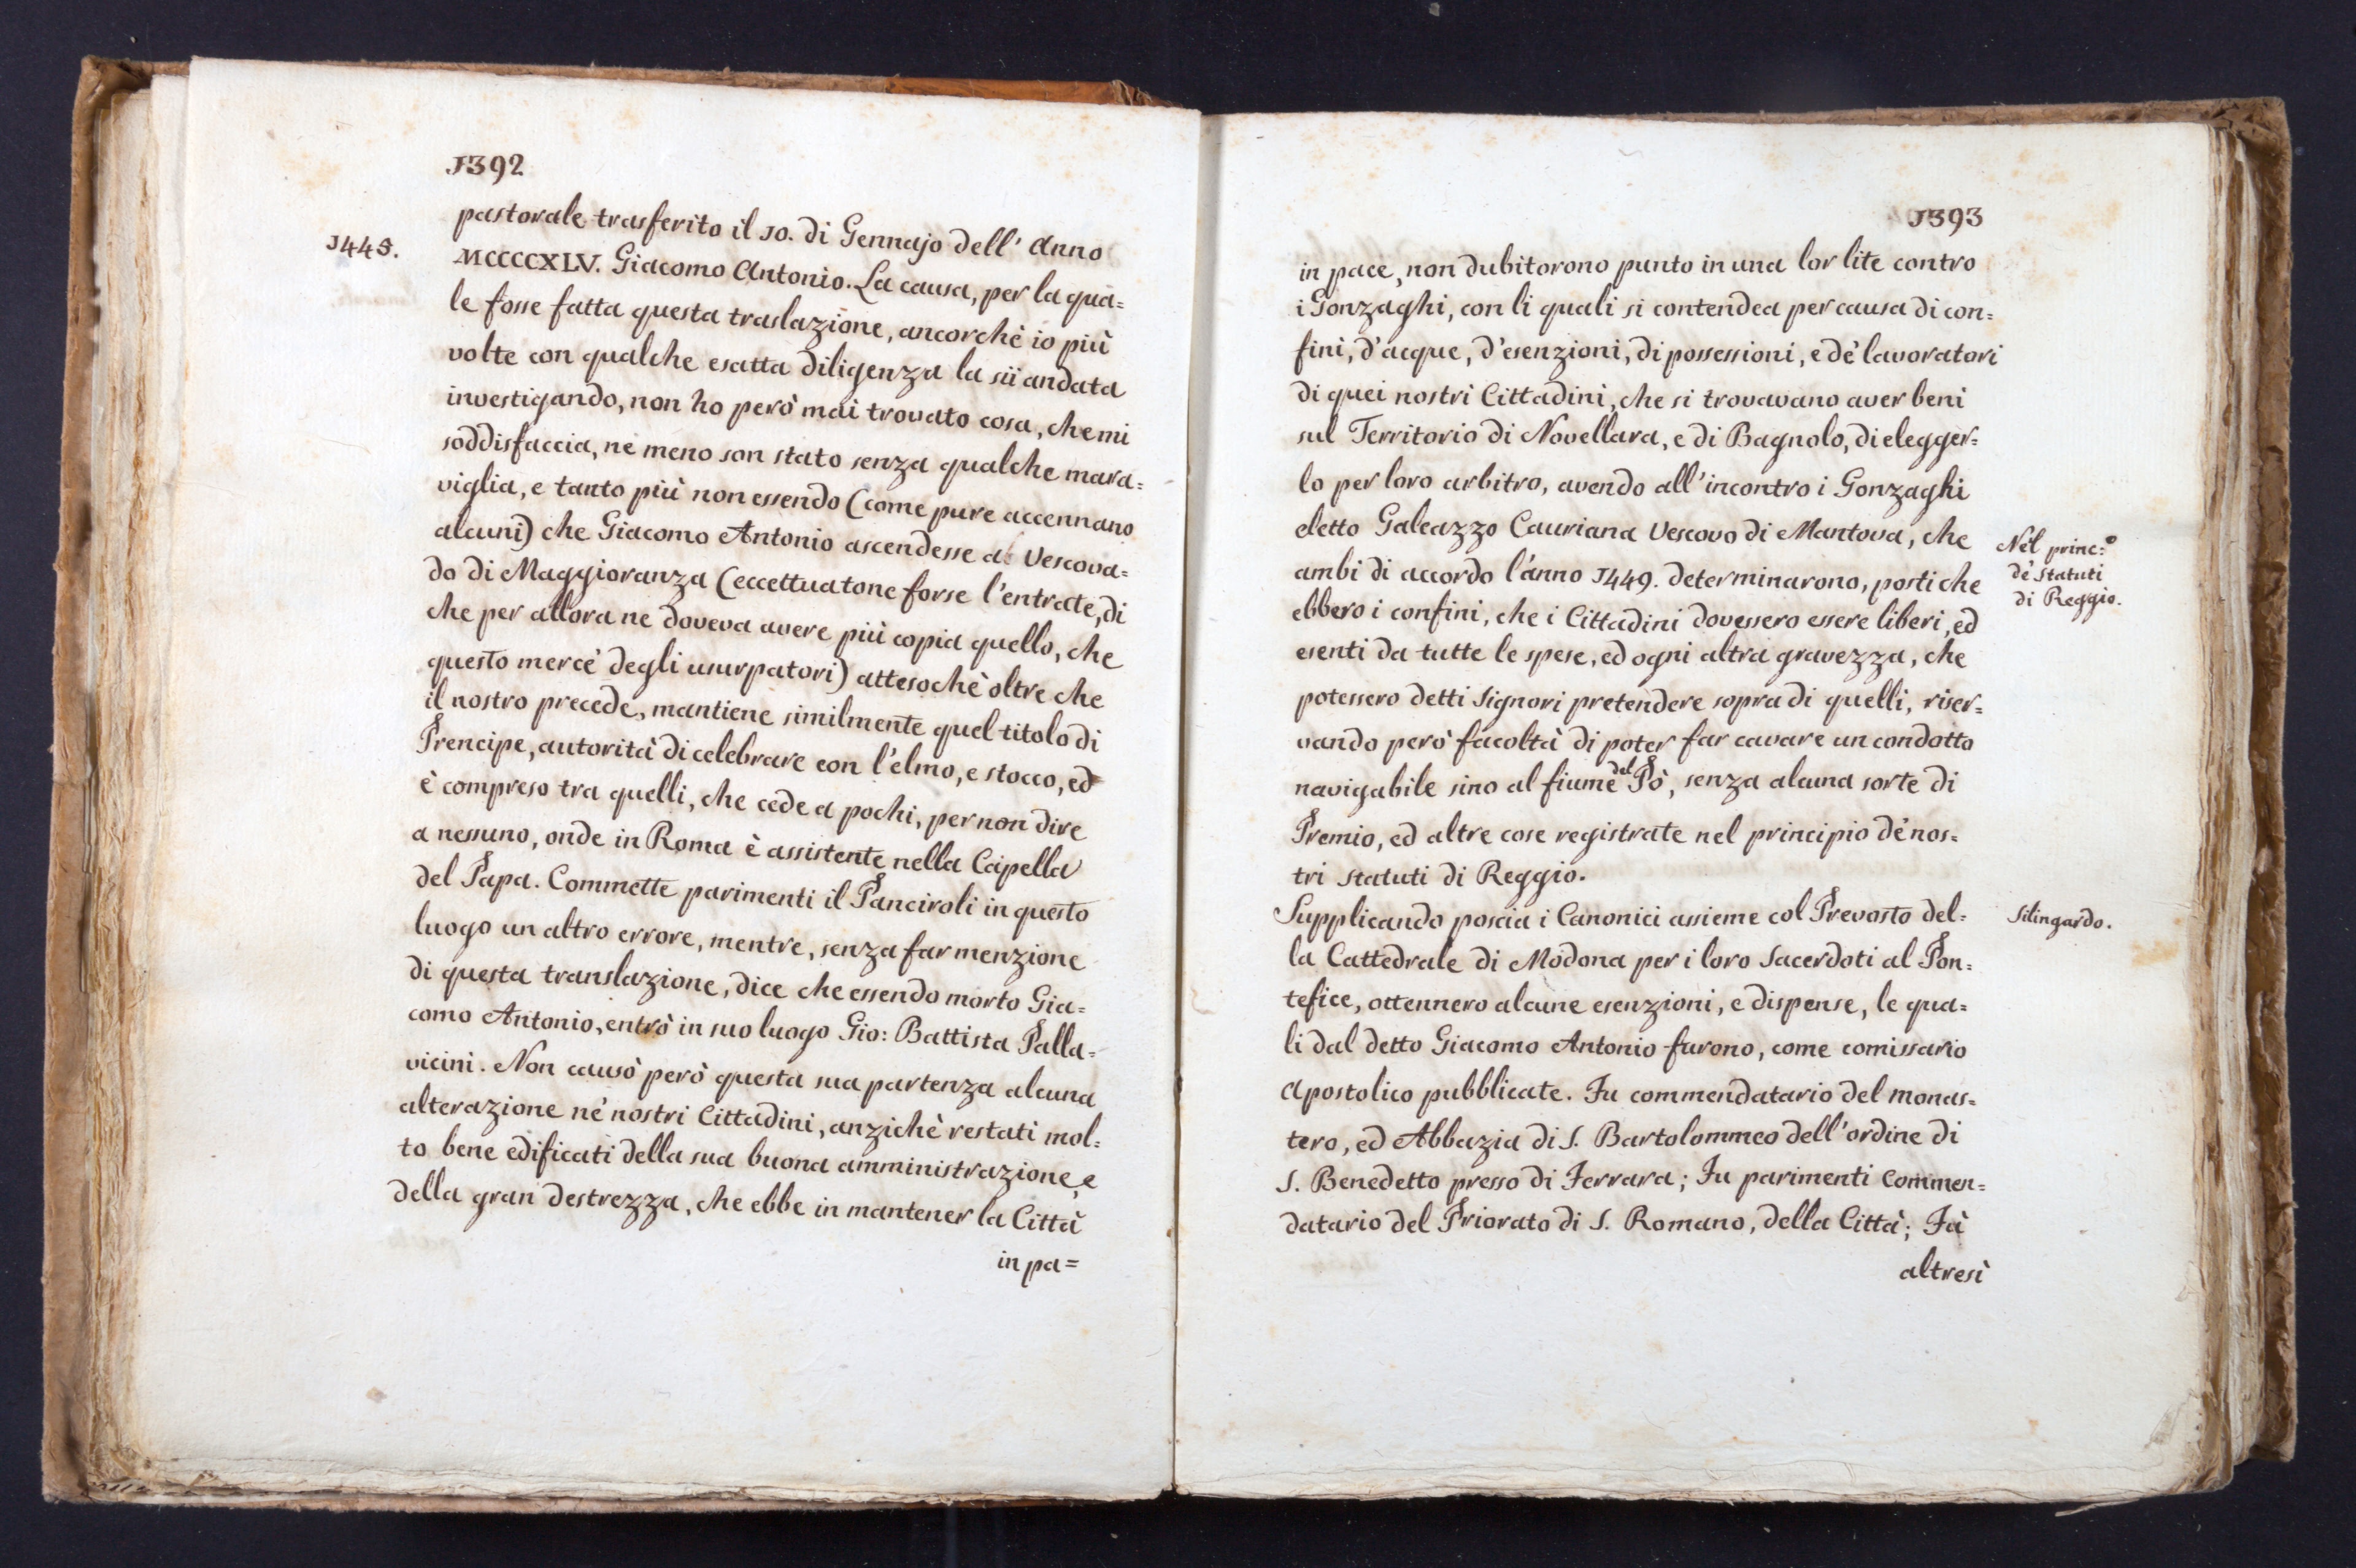 1392
pastorale trasferito il 10. di Gennajo dell' Anno
1445.
MCCCCXLV. Giacomo Antonio. La causa, per la qua=
le fosse fatta questa traslazione, ancorchè io più
volte con qualche esatta diligenza la sii andata
investigando, non ho però mai trovato cosa, che mi
soddisfaccia, ne meno son stato senza qualche mara=
viglia, e tanto più non essendo (come pure accennano
alcuni) che Giacomo Antonio ascendesse al Vescova=
do di Maggioranza (eccettuatone forse l'entrate, di
che per allora ne doveva avere più copia quello, che
questo mercè degli usurpatori) attesochè oltre che
il nostro precede, mantiene similmente quel titolo di
Prencipe, autorità di celebrare con l'elmo, e stocco, ed
è compreso tra quelli, che cede a pochi, per non dire
a nessuno, onde in Roma è assistente nella Capella
del Papa. Commette parimenti il Panciroli in questo
luogo un altro errore, mentre, senza far menzione
di questa translazione, dice che essendo morto Gia=
como Antonio, entrò in suo luogo Gio: Battista Palla=
vicini. Non causò però questa sua partenza alcuna
alterazione ne' nostri Cittadini, anzichè restati mol=
to bene edificati della sua buona amministrazione, e
della gran destrezza, che ebbe in mantener la Città
in pa=
1393
in pace, non dubitorono punto in una lor lite contro
i Gonzaghi, con li quali si contendea per causa di con=
fini, d'acque, d'esenzioni, di possessioni, e de' lavoratori
di quei nostri Cittadini, che si trovavano aver beni
sul Territorio di Novellara, e di Bagnolo, di elegger=
lo per loro arbitro, avendo all'incontro i Gonzaghi
eletto Galeazzo Cauriana Vescovo di Mantova, che
ambi di accordo l'anno 1449. determinarono, posti che
ebbero i confini, che i Cittadini dovessero essere liberi, ed
esenti da tutte le spese, ed ogni altra gravezza, che
potessero detti Signori pretendere sopra di quelli, riser=
vando però facoltà di poter far cavare un condotto
navigabile sino al fiume del Pò, senza alcuna sorte di
Premio, ed altre cose registrate nel principio de' nos=
tri Statuti di Reggio.
Nel princ:º
de' Statuti
di Reggio.
Supplicando poscia i Canonici assieme col Prevosto del=
la Cattedrale di Modona per i loro Sacerdoti al Pon=
tefice, ottennero alcune esenzioni, e dispense, le qua=
li dal detto Giacomo Antonio furono, come comissario
Apostolico pubblicate. Fu commendatario del monas=
tero, ed Abbazia di S. Bartolommeo dell'ordine di
S. Benedetto presso di Ferrara; Fu parimenti Commen=
datario del Priorato di S. Romano, della Città; Fù
altresì
Silingardo.